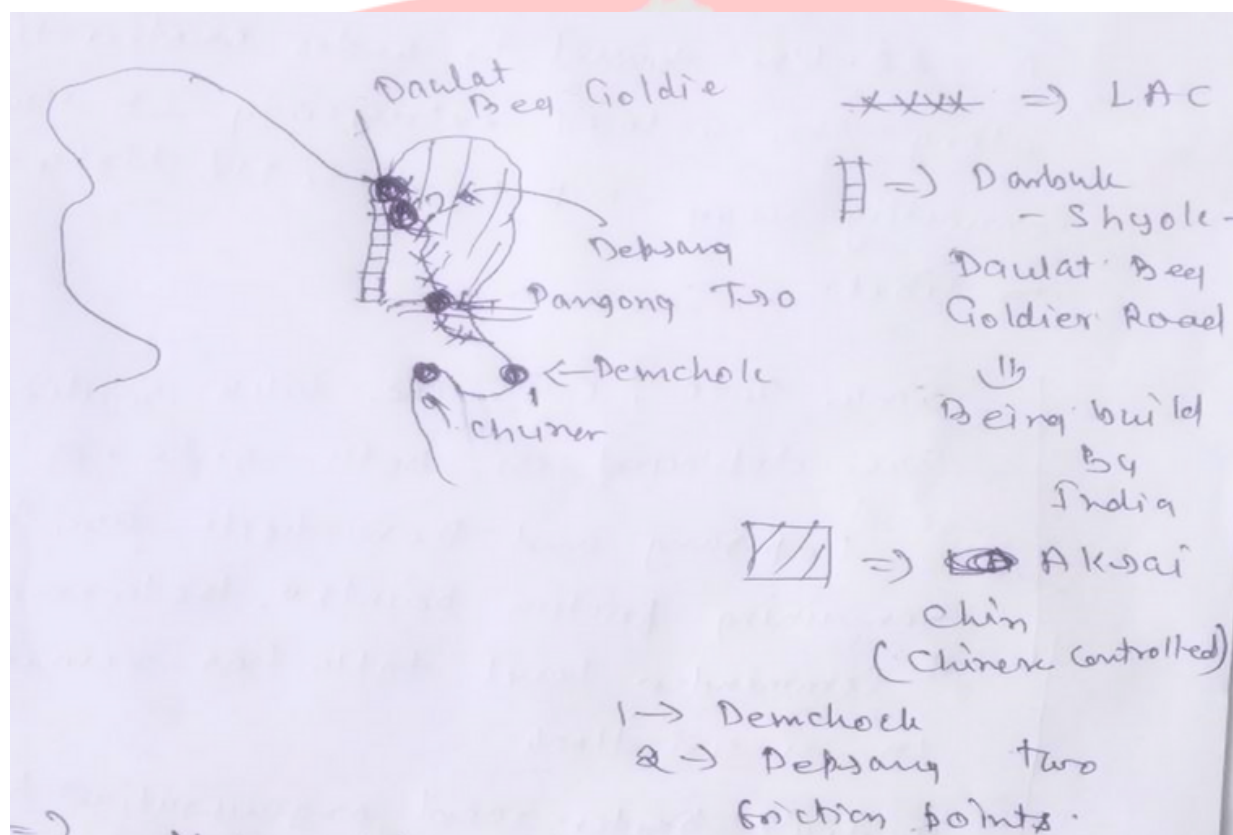 Daulat
Beg Goldie
Depsang
Pangong Tso
Demchok
Chumer
1
2
=> LAC
=> Darbuk
- Shyok -
Daulat Beg
Goldier Road
Being build
By
India
=> Aksai
Chin
(Chinese Controlled)
1 -> Demchock
2 -> Depsang two
friction points.
=>